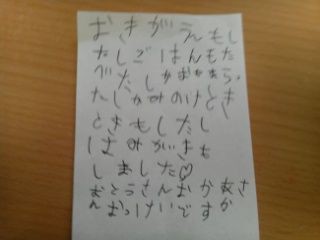 おきがえもし
たしごはんもた
べたしかおもあら
たしかみのけとき
ときもしたし
はみがきも
しました♡
おとうさんおかあさ
んおっけいですか